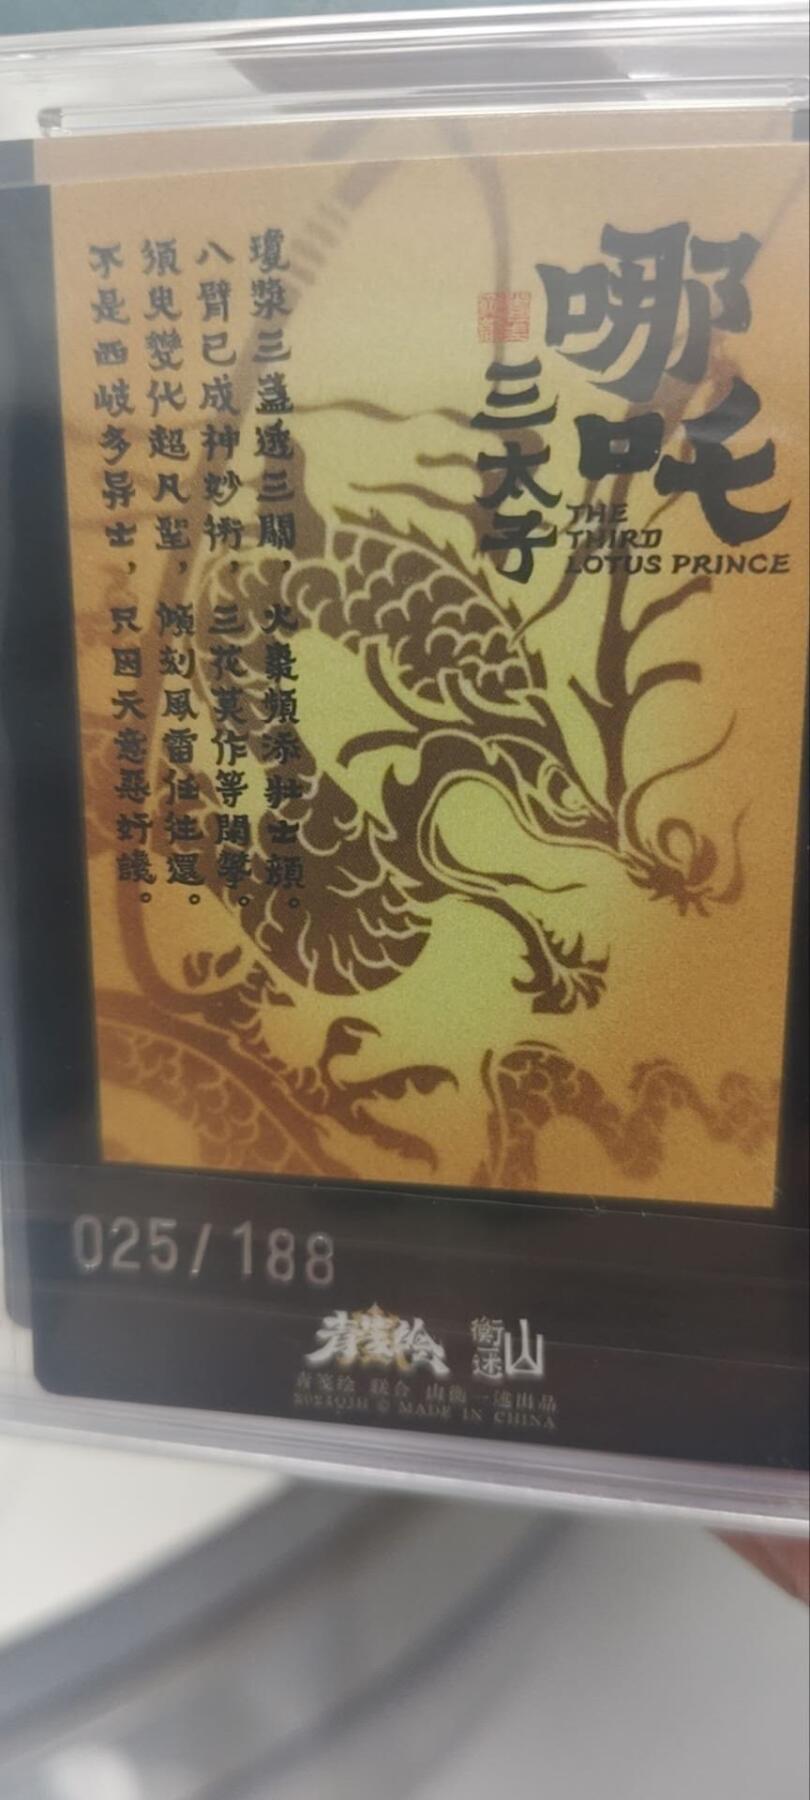 哪吒
三太子
THE
THIRD
LOTUS PRINCE
瓊漿三盞透三關，火棗頻添壯士顏。
八臂已成神妙術，三花莫作等閒攀。
須臾變化超凡聖，傾刻風雷任往還。
不是西岐多异士，只因天意惡奸讒。
025/188
青笺绘
山衡一述
青笺绘 联合 山衡一述出品
© MADE IN CHINA